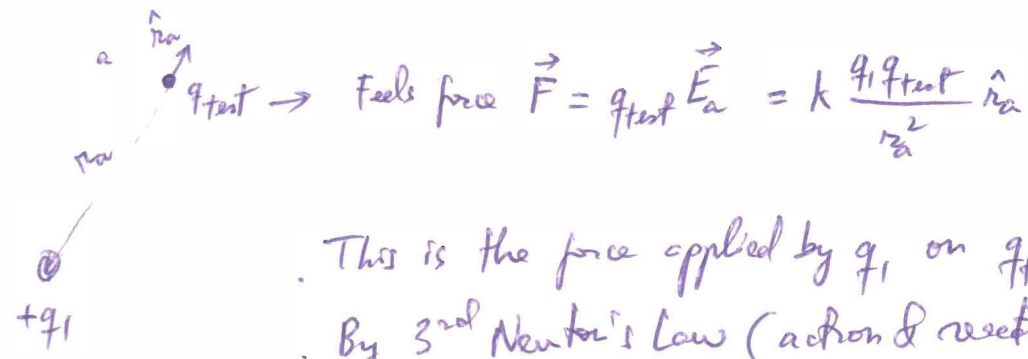 r̂a
a
qtest → Feels force F⃗ = qtest E⃗a = k q1 qtest / ra² r̂a
ra
. This is the force applied by q1 on
+q1
. By 3rd Newton's Law (action &